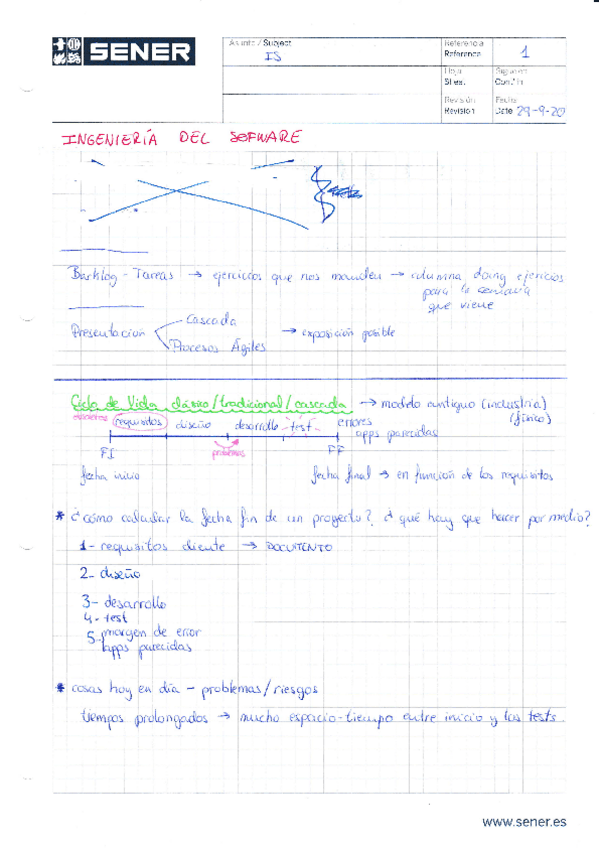 SENER
Asunto / Subject
IS
Referencia
Reference
1
Hoja
Sheet
Siguiente
Cont. in
Revisión
Revision
Fecha
Date 29-9-20
INGENIERÍA DEL SOFWARE
Backlog - Tareas → ejercicios que nos manden → columna doing ejercicios
para la semana
que viene
Presentación
Cascada
Procesos Ágiles
→ exposición posible
Ciclo de Vida clásico/tradicional/cascada → modelo antiguo (industria)
(físico)
requisitos diseño desarrollo test errores
apps parecidas
FI
problemas
FF
fecha inicio
fecha final → en función de los requisitos
* ¿cómo calcular la fecha fin de un proyecto? ¿qué hay que hacer por medio?
1- requisitos cliente → DOCUMENTO
2- diseño
3- desarrollo
4- test
5- margen de error
apps parecidas
* cosas hoy en día - problemas/riesgos
tiempos prolongados → mucho espacio-tiempo entre inicio y los tests
www.sener.es